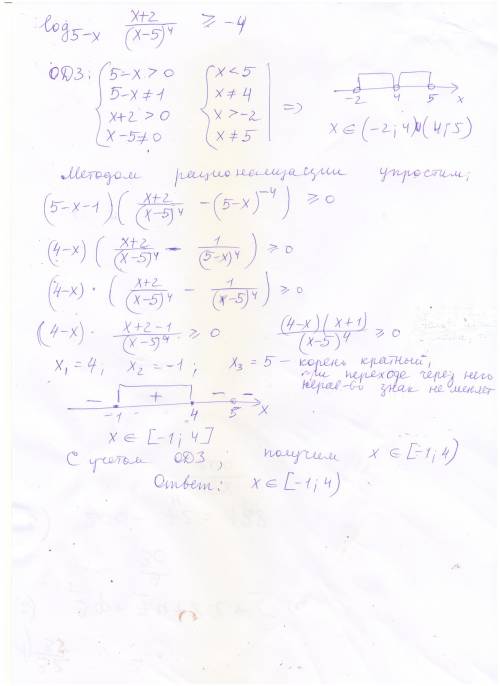 log_{5-x} \frac{x+2}{(x-5)^4} ≥ -4
ОДЗ: { 5-x > 0 { x < 5
5-x ≠ 1 x ≠ 4
x+2 > 0 x > -2 =>
x-5 ≠ 0 x ≠ 5
-2 4 5 x
x ∈ (-2; 4) ∪ (4; 5)
Методом рационализации упростим:
(5-x-1) ( \frac{x+2}{(x-5)^4} - (5-x)^{-4} ) ≥ 0
(4-x) ( \frac{x+2}{(x-5)^4} - \frac{1}{(5-x)^4} ) ≥ 0
(4-x) · ( \frac{x+2}{(x-5)^4} - \frac{1}{(x-5)^4} ) ≥ 0
(4-x) · \frac{x+2-1}{(x-5)^4} ≥ 0 \frac{(4-x)(x+1)}{(x-5)^4} ≥ 0
x_1 = 4, x_2 = -1; x_3 = 5 - корень кратный,
при переходе через него
нерав-во знак не меняет
- + - -
-1 4 5 x
x ∈ [-1; 4]
С учетом ОДЗ, получим x ∈ [-1; 4)
Ответ: x ∈ [-1; 4)